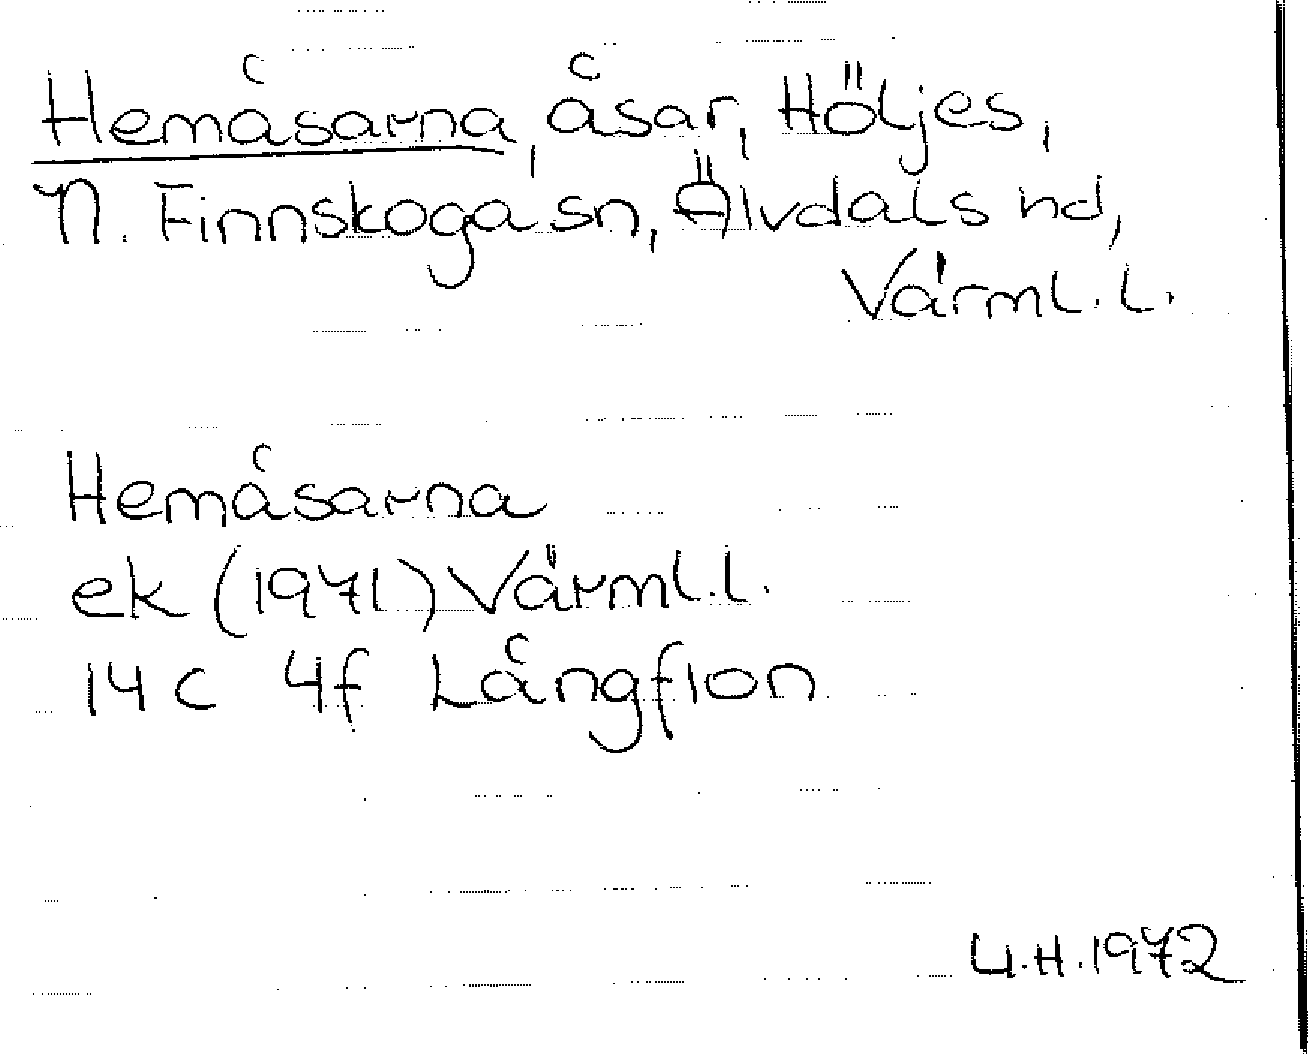 Hemåsarna, åsar, Höljes,
N. Finnskoga sn, Älvdals hd,
Värml. l.
Hemåsarna
ek (1971) Värml. l.
14 C 4f Långflon
U.H. 1972